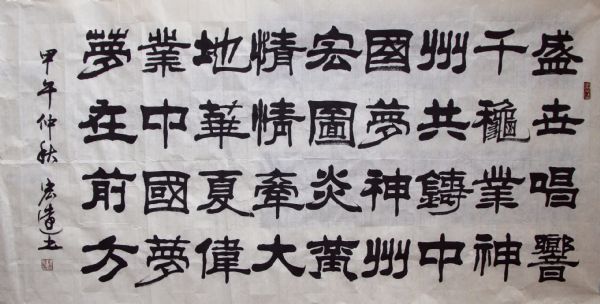 盛世唱響
千龝業神
州共鑄中
國夢神州
宏圖炎黃
情情牽大
地華夏偉
業中國夢
夢在前方
甲午仲秋